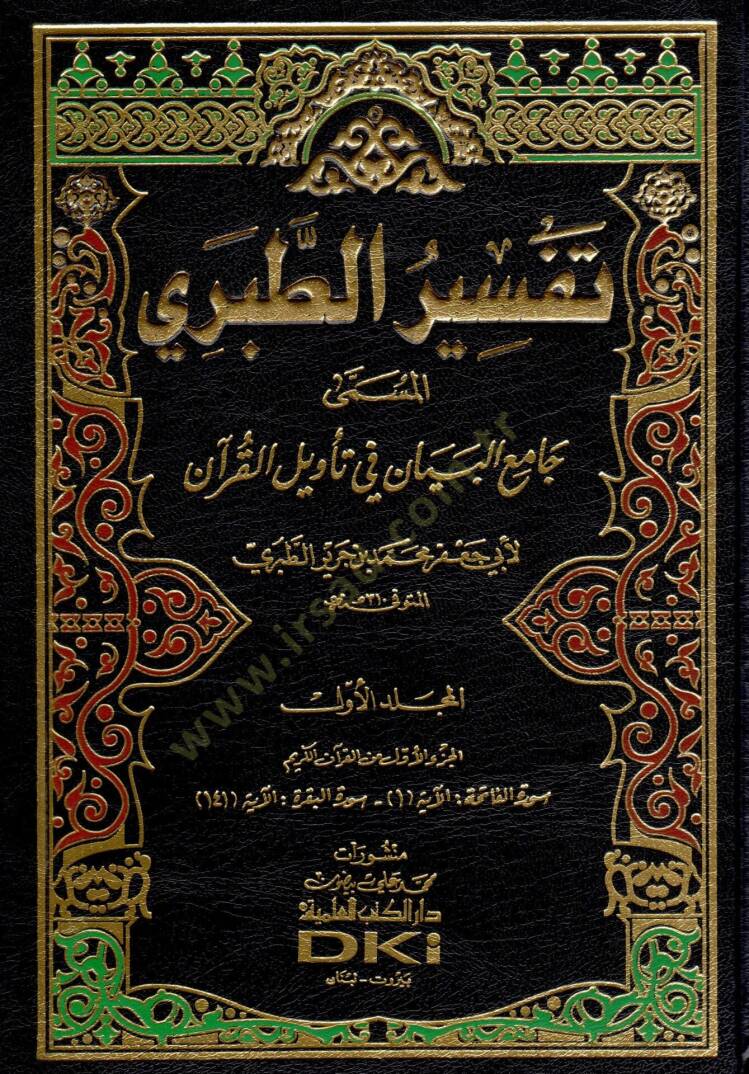 تَفْسِيرُ الطَّبَرِي
المُسَمَّىٰ
جَامِع البَيَان فِي تأويل القُرآن
لأبي جَعْفَر محمَّد بن جَرير الطَّبَريّ
المتوفى ٣١٠ هـ
المجلد الأوّل
الجزء الأوّل من القرآن الكريم
سورة الفاتحة : الآية (١) - سورة البقرة : الآية (١٤١)
منشورات
محمد علي بيضون
دار الكتب العلمية
DKi
بيروت - لبنان
www.irsad.com.tr